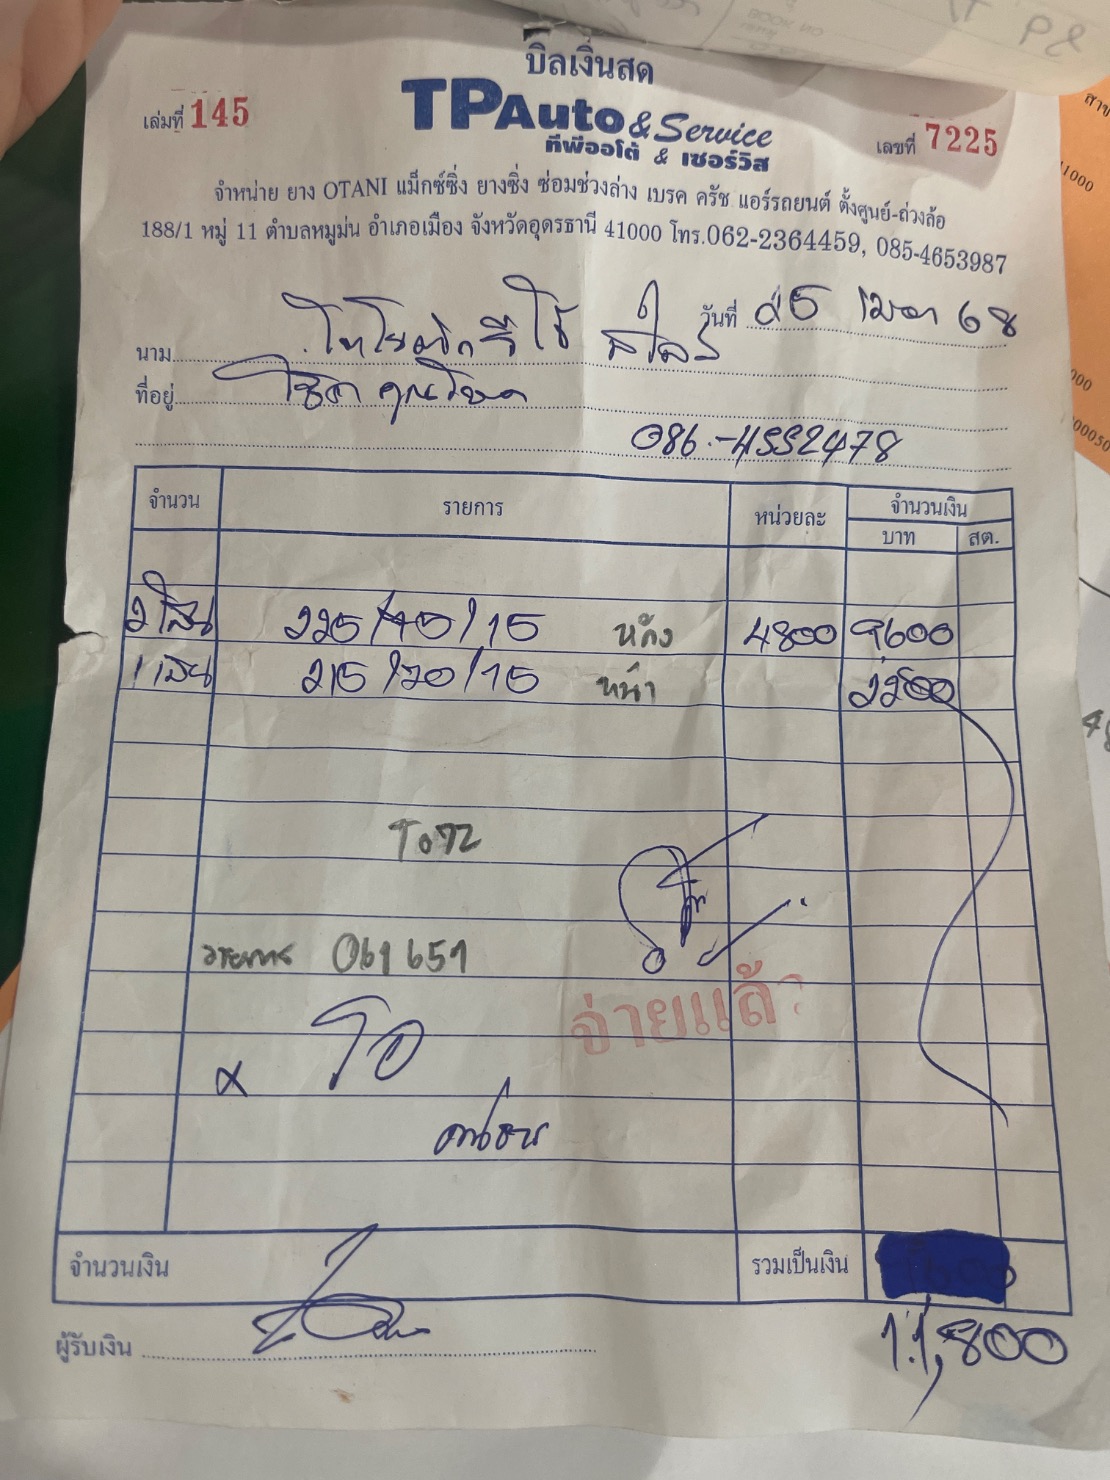 บิลเงินสด
เล่มที่ 145
TP Auto & Service
เลขที่ 7225
ทีพีออโต้ & เซอร์วิส
จำหน่าย ยาง OTANI แม็กซ์ซิ่ง ยางซิ่ง ซ่อมช่วงล่าง เบรค ครัช แอร์รถยนต์ ตั้งศูนย์-ถ่วงล้อ
188/1 หมู่ 11 ตำบลหมูม่น อำเภอเมือง จังหวัดอุดรธานี 41000 โทร.062-2364459, 085-4653987
วันที่ 25 เมษา 68
นาม
ที่อยู่
086-4552478
จำนวน รายการ หน่วยละ จำนวนเงิน
บาท สต.
2 เส้น 225/70/15 หลัง 4800 9600
1 เส้น 215/70/15 หน้า 2200
061651
จ่ายแล้ว
จำนวนเงิน รวมเป็นเงิน
11,800
ผู้รับเงิน